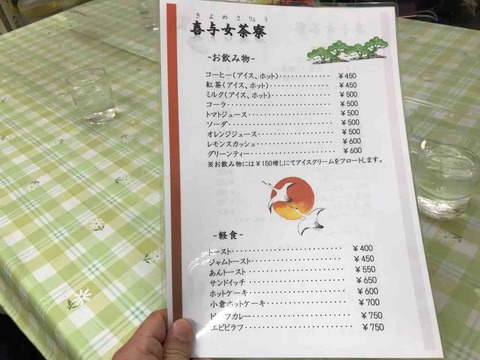 きよめさりょう
喜与女茶寮
-お飲み物-
コーヒー(アイス、ホット)‥‥‥‥‥‥ ￥450
紅茶(アイス、ホット)‥‥‥‥‥‥ ￥450
ミルク(アイス、ホット)‥‥‥‥‥‥ ￥500
コーラ‥‥‥‥‥‥ ￥500
トマトジュース‥‥‥‥‥‥ ￥500
ソーダ‥‥‥‥‥‥ ￥500
オレンジジュース‥‥‥‥‥‥ ￥500
レモンスカッシュ‥‥‥‥‥‥ ￥600
グリーンティー‥‥‥‥‥‥ ￥600
※お飲み物には￥150増しにてアイスクリームをフロートします。
-軽食-
トースト‥‥‥‥‥‥ ￥400
ジャムトースト‥‥‥‥‥‥ ￥450
あんトースト‥‥‥‥‥‥ ￥550
サンドイッチ‥‥‥‥‥‥ ￥650
ホットケーキ‥‥‥‥‥‥ ￥600
小倉ホットケーキ‥‥‥‥‥‥ ￥700
ビーフカレー‥‥‥‥‥‥ ￥750
エビピラフ‥‥‥‥‥‥ ￥750